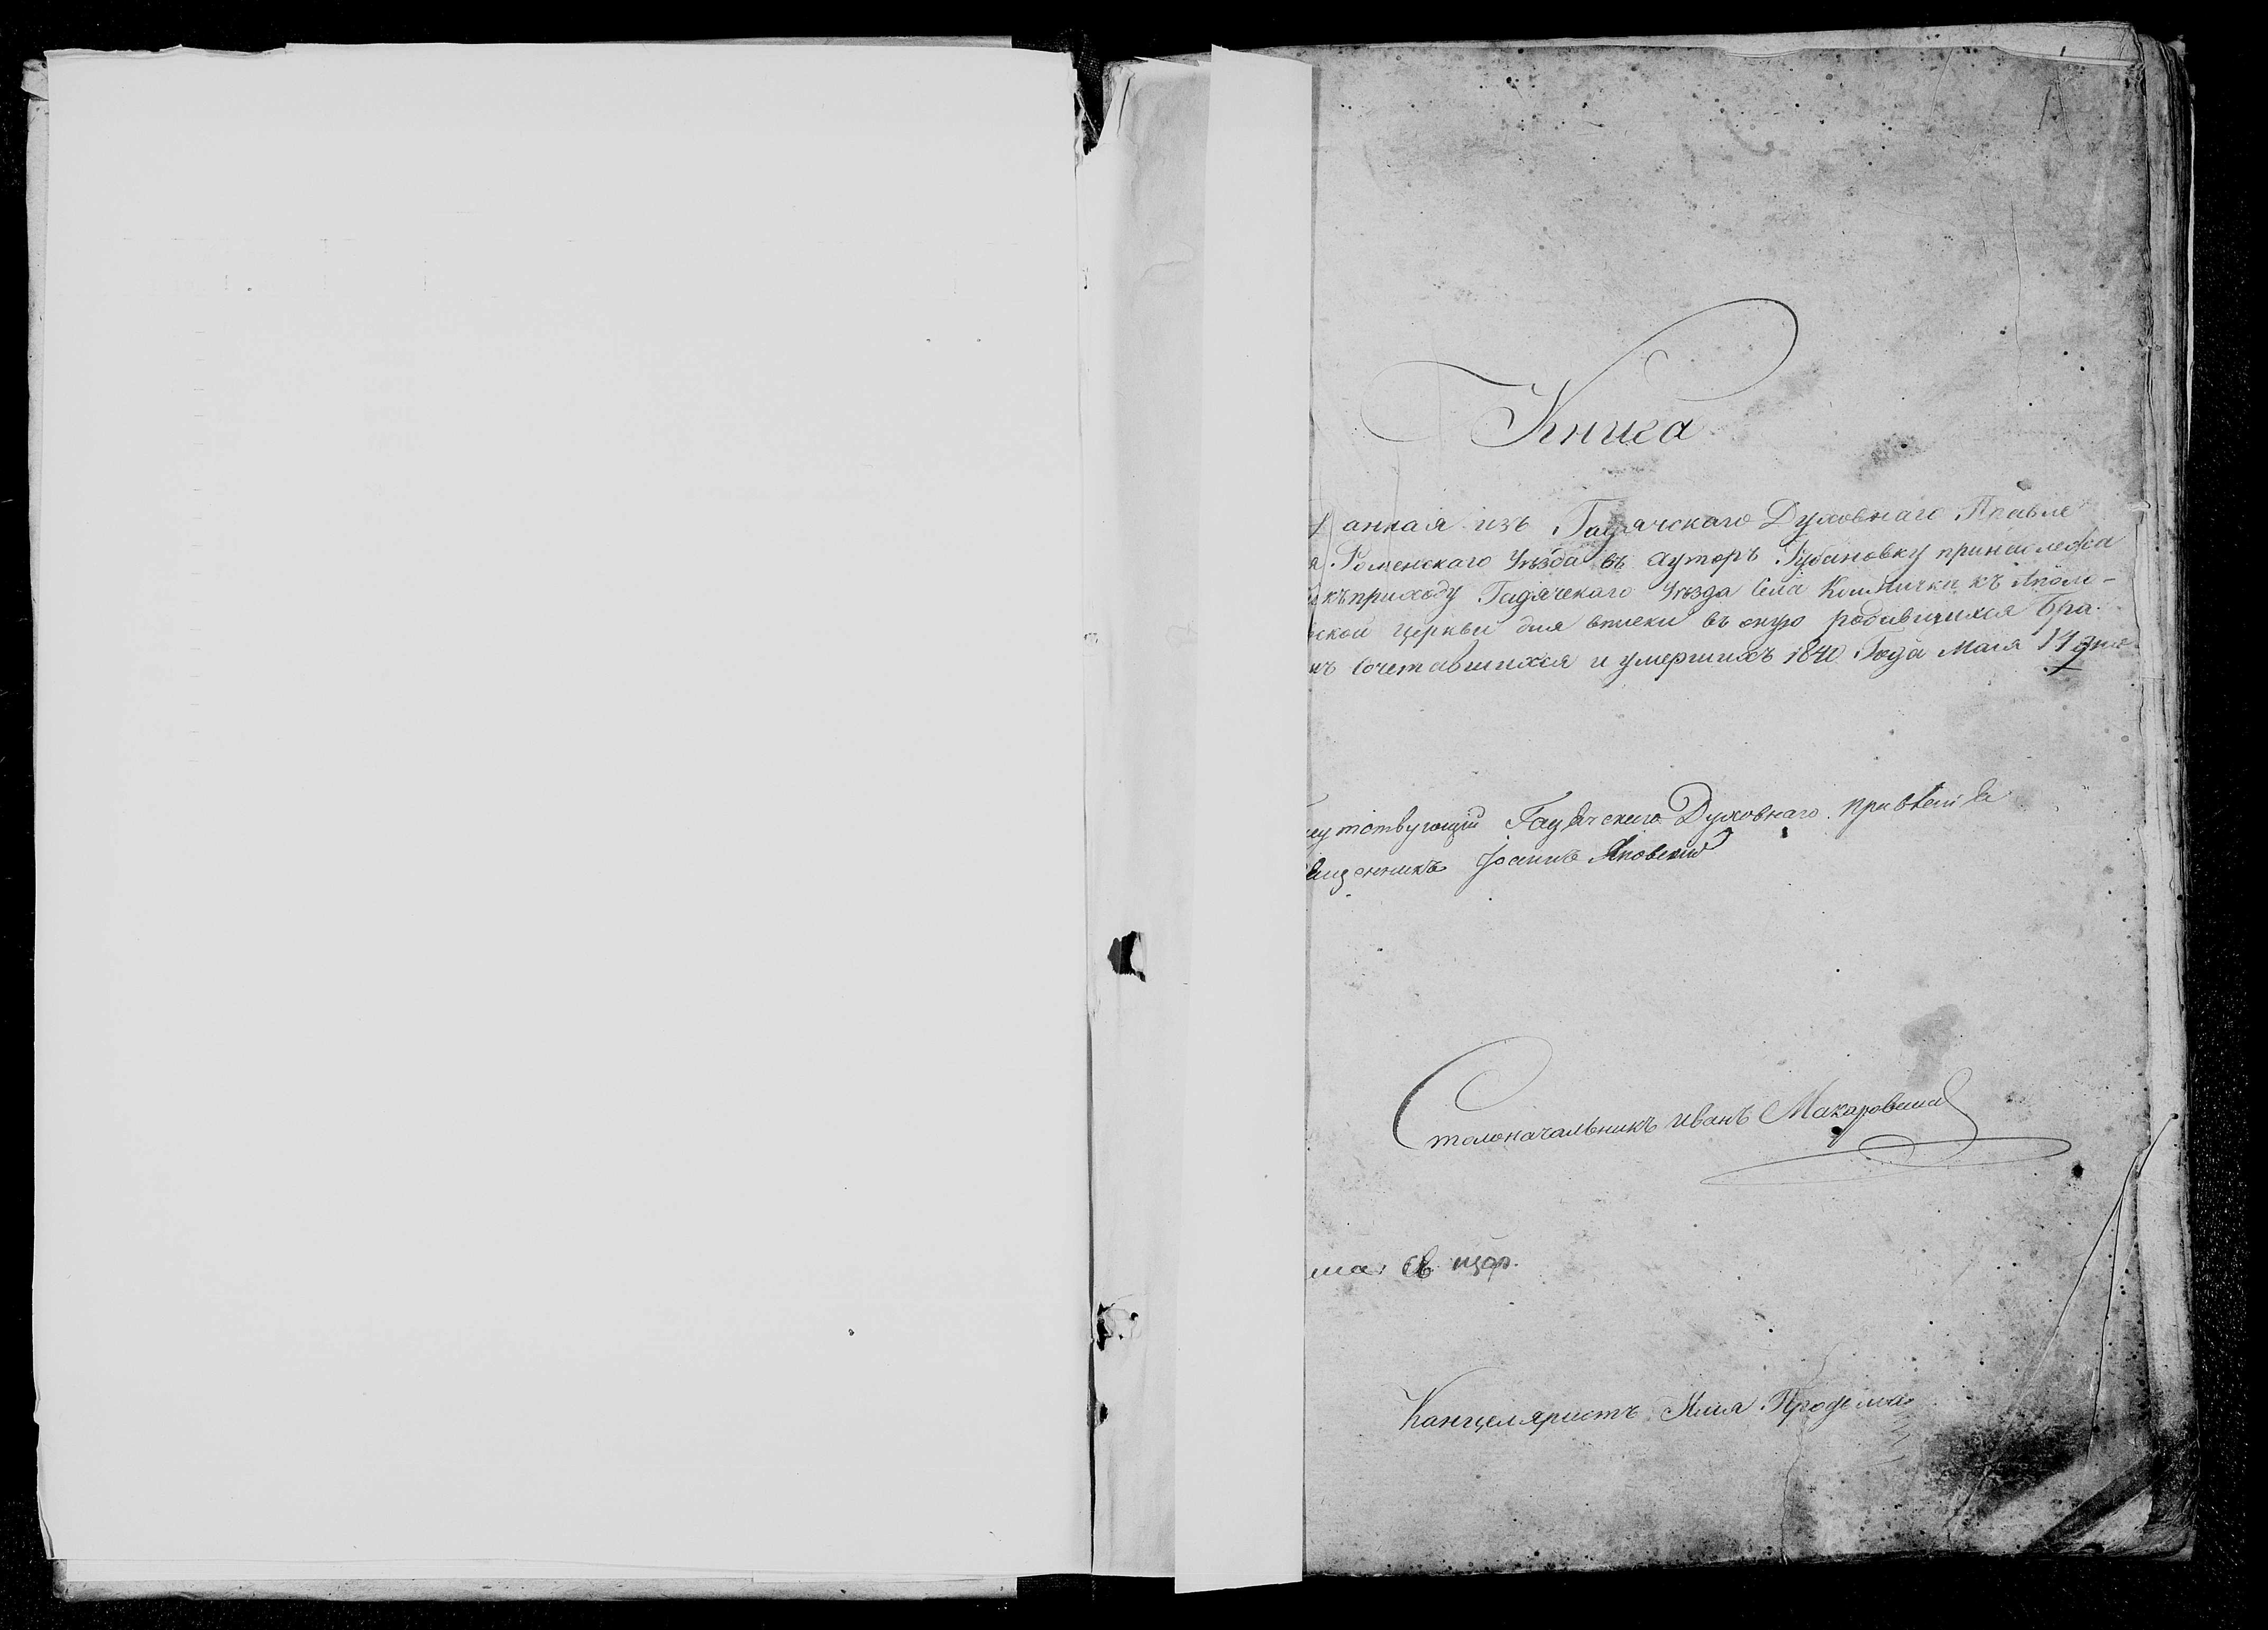 Книга
анная изъ Гадячского Духовнаго Правле
Роменскаго Уѣзда въ хуторъ Губановку принадлежа
къ приходу Гадячскаго Уѣзда Села къ Аполо-
ской церкви для вписки въ оную родившихся бра
нъ сочетавшихся и умершихъ 1840 Года Мая 14 дня
утствующій Гадячскаго Духовнаго правленія
вященникъ Іоаннъ Яновский
Столоначальникъ Иванъ Макаровский
Канцеляристъ Илия